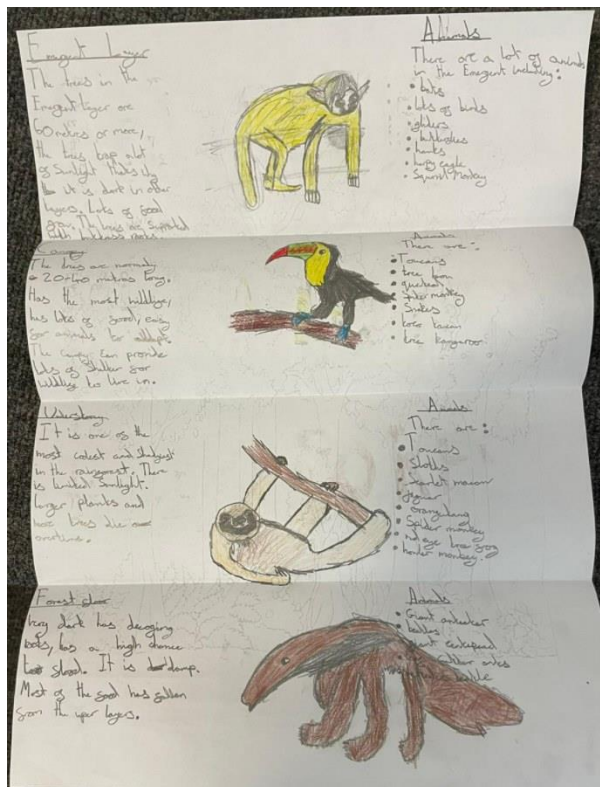 Emergent Layer
The trees in the
Emergent layer are
60 metres or more,
the trees trap alot
of Sunlight
it is dark in other
layers. Lots of food
grow. The trees are supported
with buttress roots.
Animals
There are a lot of animals
in the Emergent including:
• bats
• lots of birds
• gliders
• butterflies
• hawks
• harpy eagle
• Squirrel Monkey
Canopy
The trees are normally
20-40 metres long.
Has the most wildlife,
has lots of food, easy
for animals to adapt.
The canopy can provide
lots of shelter for
wildlife to live in.
Animals
There are:
• Toucans
• Spider monkey
• Snakes
• tree kangaroo
Understory
It is one of the
most and
in the rainforest. There
is limited Sunlight.
larger plants and
trees die
overtime.
Animals
There are:
• Toucans
• Sloths
• Scarlet macaw
• jaguar
• orangutang
• Spider monkey
• red eye tree frog
• howler monkey.
Forest floor
very dark has decaying
has a high chance
flood. It is damp.
Most of the food has fallen
from the uper layers.
Animals
• Giant anteater
• beetles